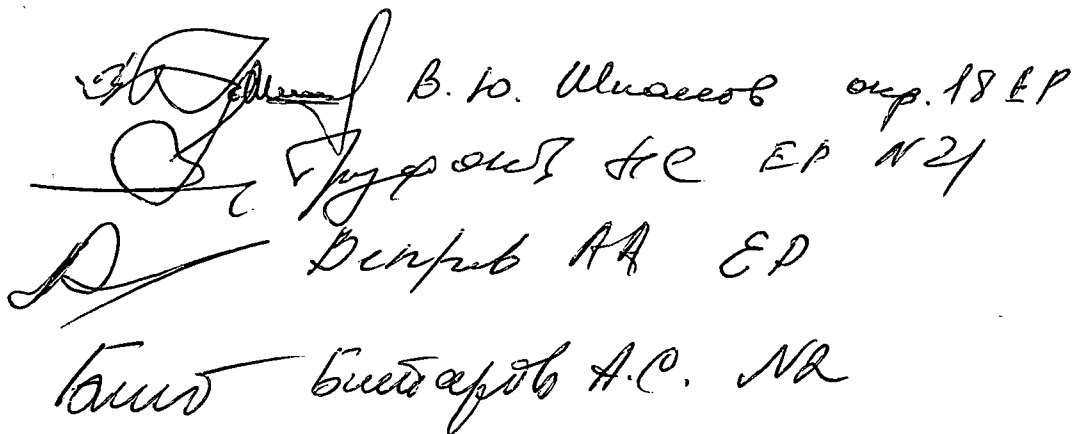 В.Ю. Шпаков окр. 18 ЕР
Труфанов НС ЕР N 21
Вепрев АА ЕР
Битаров А.С. N2